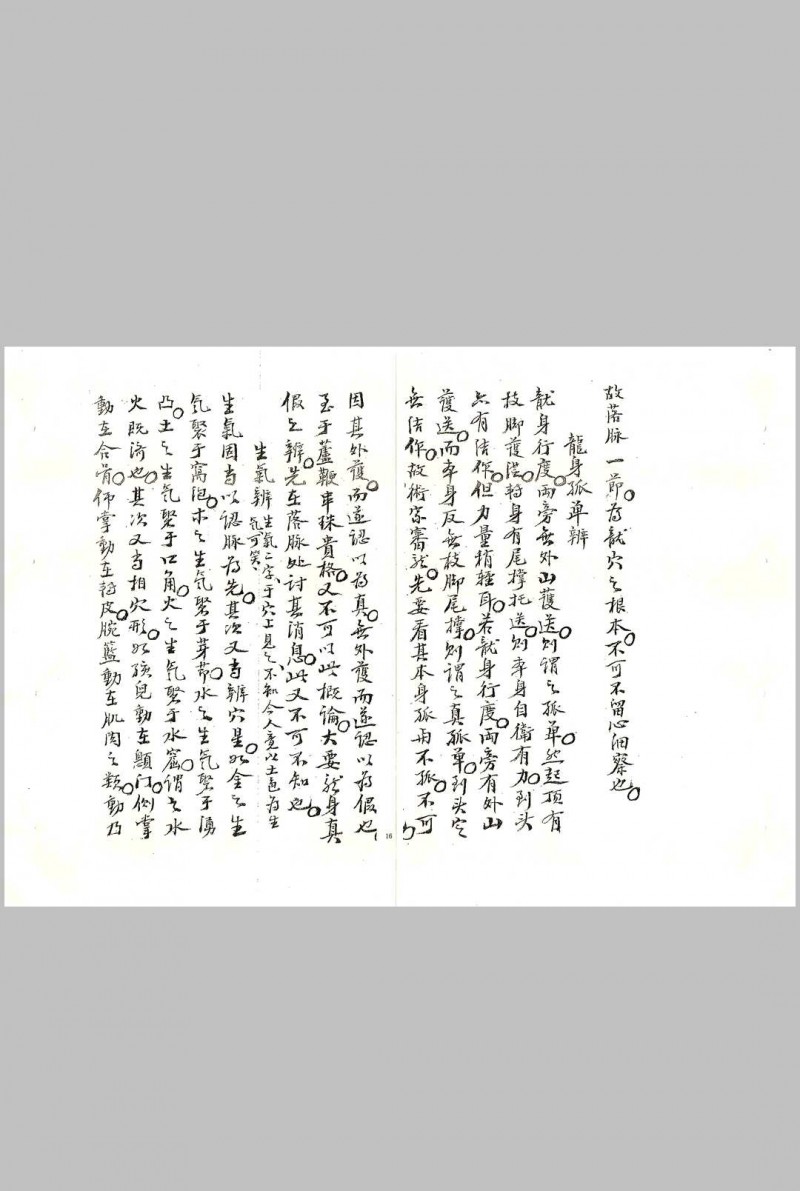 故落脉一節。為龍穴之根本。不可不留心細察也。
龍身孤单辨
龍身行度。両旁無外山護送。则謂之孤单。然起頂有
枝脚護從。轉身有尾撑托送。则本身自衛有力。到头
必有结作。但力量稍輕耳。若龍身行度。両旁有外山
護送。而本身反無枝脚尾撑。则謂之真孤单。到头定
無结作。故術家審龍。先要看其本身孤与不孤。不可
16
因其外護。而遂認以為真。無外護而遂認以為假也。
至于蘆鞭串珠貴格。又不可以此概論。大要龍身真
假之辨。先在落脉处讨其消息。此又不可不知也。
生氣辨 生氣二字。于穴上見之。不知今人竟以土色為生
气可笑。
生氣固当以認脉為先。其次又当辨穴星。如金之生
气聚于窩泡。木之生气聚于芽节。水之生气聚于湧
凸。土之生气聚于口角。火之生气聚于水窟。謂之水
火既济也。其次又当相穴形。如孩兒動在顖门。侧掌
動在合骨。仰掌動在轉皮。腕籃動在肌肉之類。動乃